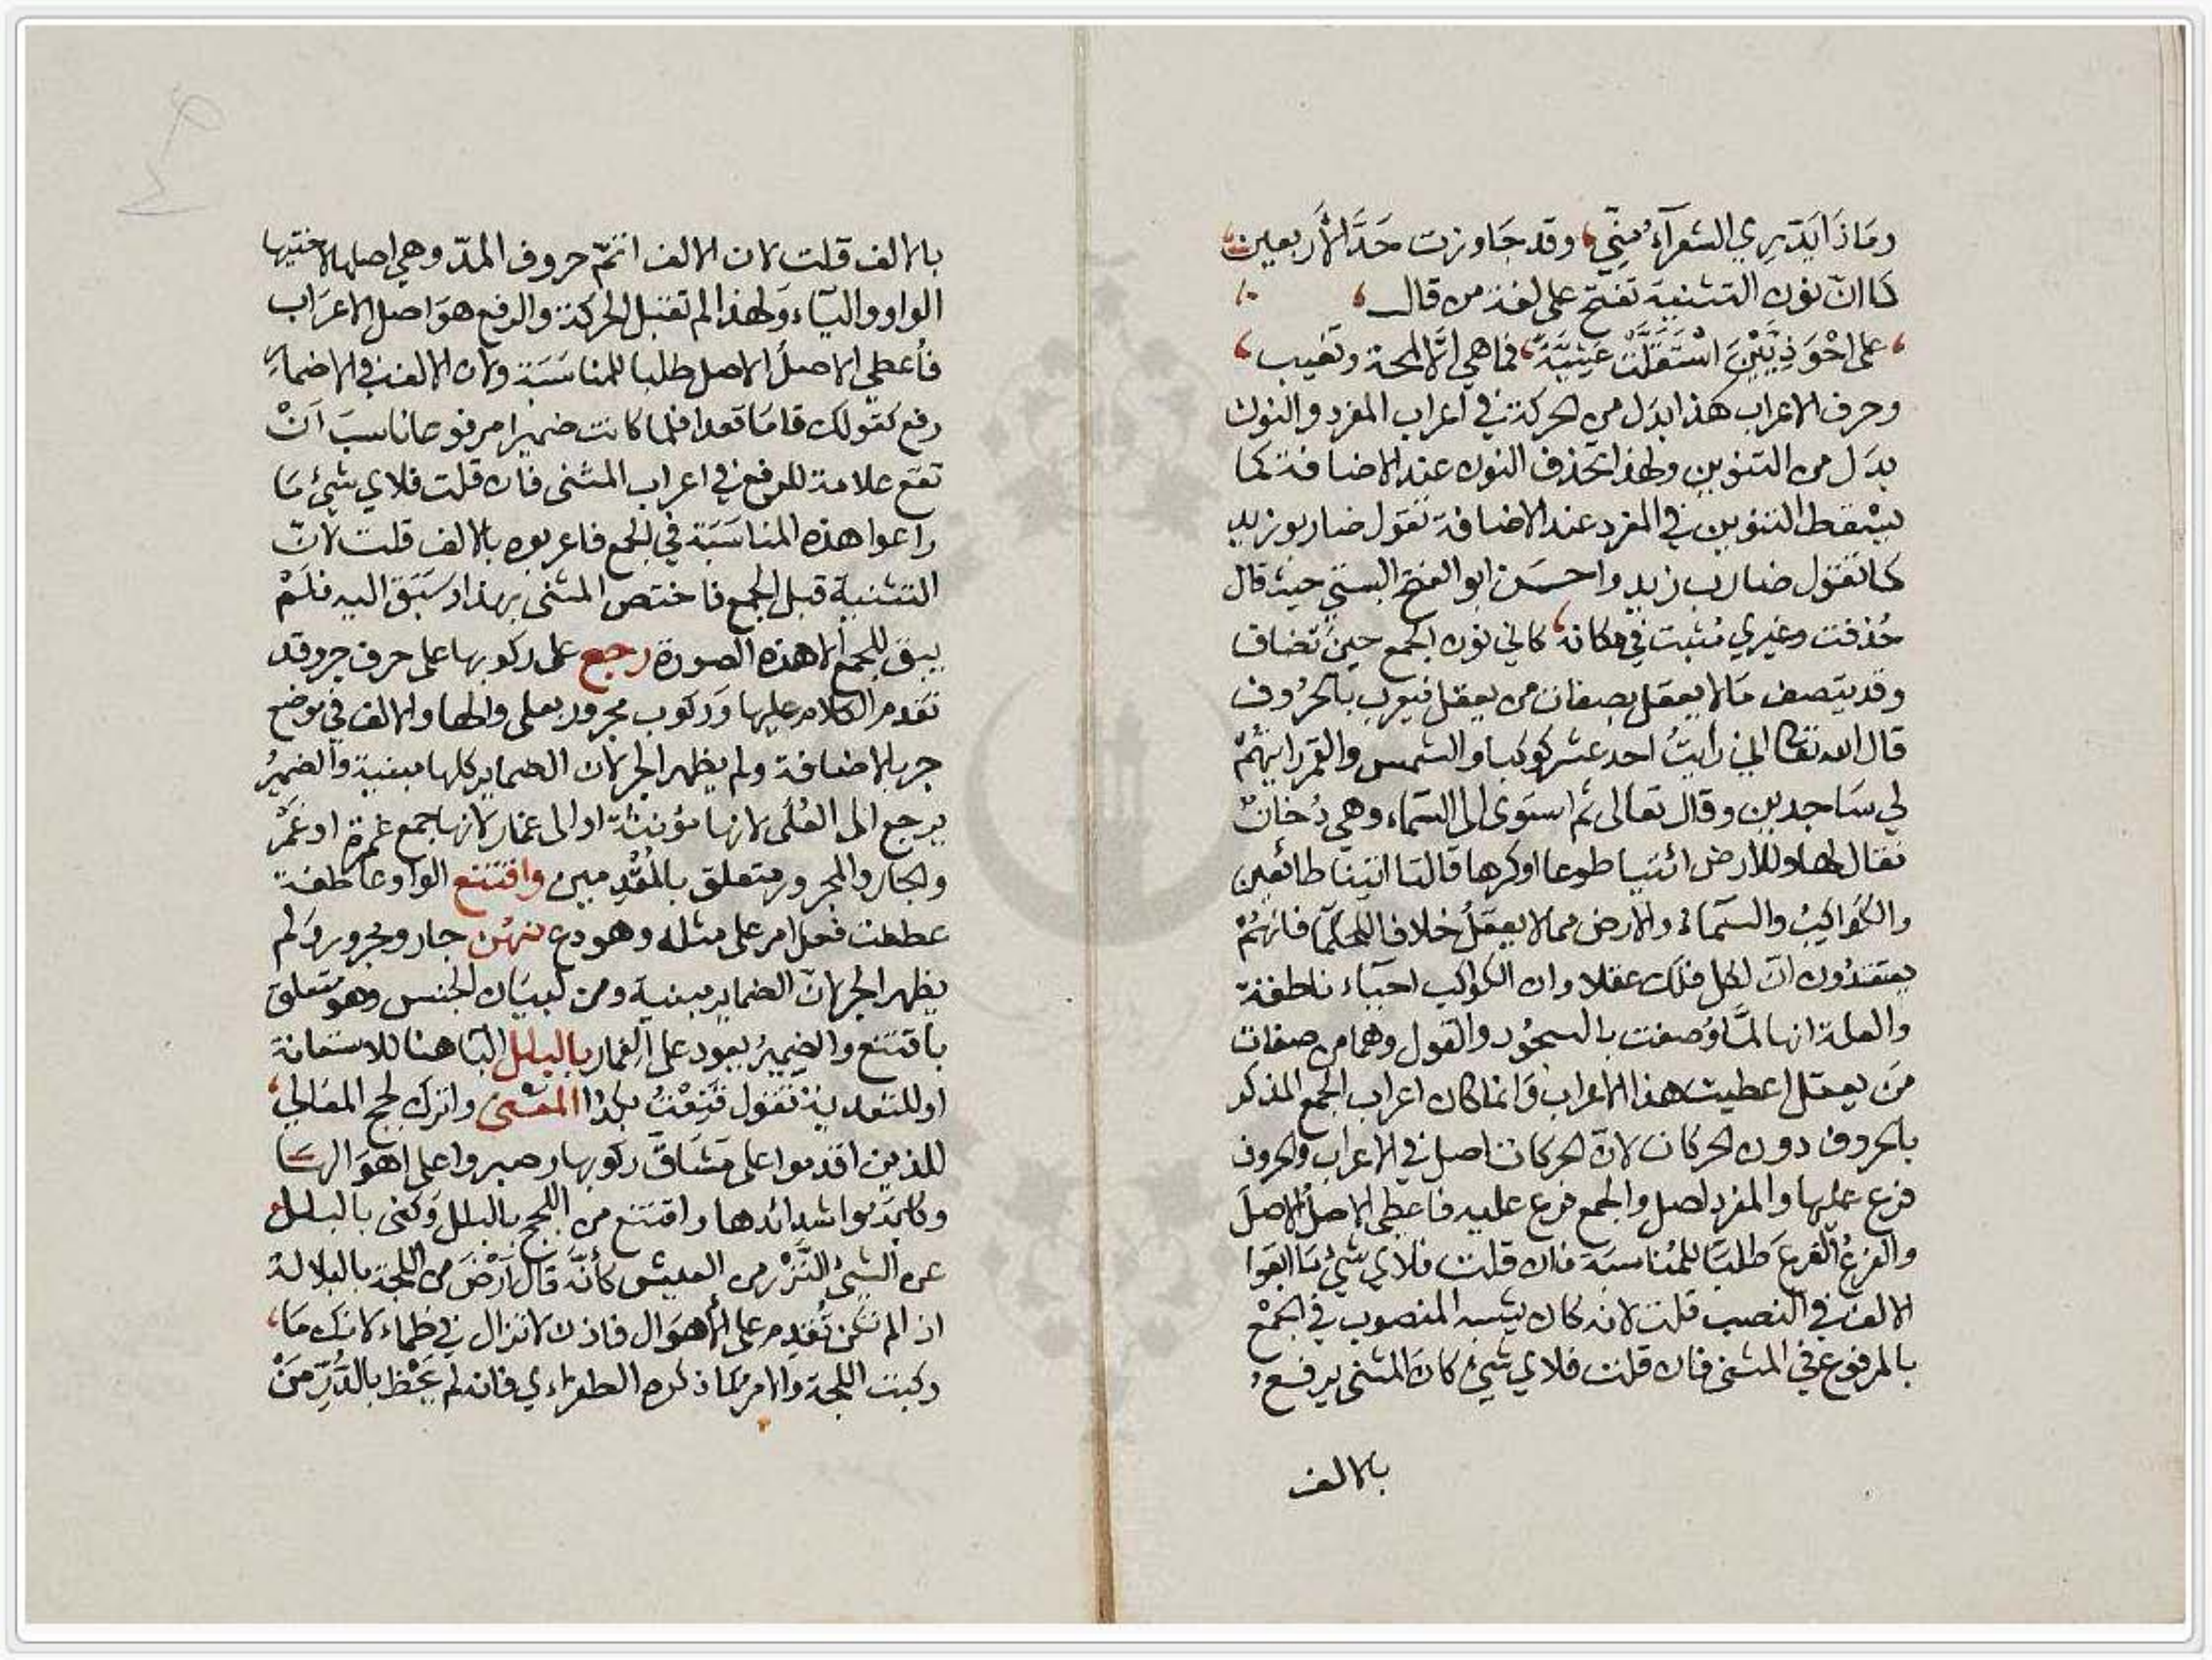 ومَاذَا يَدَّرِي الشعرآءُ مِنِّي، وقد جَاوزت حَدَّ الأَربعين
كما انّ نون التثنية تفتح على لغة من قال
على احْوَذِيَّيْنَ اسْتَقَلَّتْ عَشِيَّةً، فما هي اِلَّا لمحة وتغيب
وحرف الاعراب هذا بدَل من الحركة في اعراب المفرد والنون
بدَل من التنوين ولهذا تحذف النون عند الاضافة كما
يسْقط التنوين في المفرد عند الاضافة تقول ضاربو زيد
كما تقول ضارب زيد واحسَن ابو الفتح البستي حيث قال
حُذفت وغيري مُثبت في مكانه، كأني نون الجمع حين تضاف
وقد يتصف مَا لا يعقل بصفات من يعقل فيعرب بالحرُوف
قال الله تعالى اني رأيتُ احد عشر كوكبا والشمس والقمر رايتهُمْ
لي سَاجدين وقال تعالى ثم استوَى الى السّماء وهي دُخانٌ
فقال لها وللأرض ائتيا طوعا او كرها قالتا اتينا طائعين
والكَواكبُ والسّماءُ والارض مما لا يعقلُ خلافا للحكمآ فانهُمْ
يعتقدُون انّ لكل فلك عقلا وان الكواكب احيآء ناطقة
والعلة انها لمَّا وُصفت بالسجُود والقول وهما من صفات
مَن يعقل اعطيت هذا الاعراب وَانما كان اعراب الجمع المذكر
بالحروف دون الحركات لانّ الحركات اصل في الاعراب والحروف
فرع عليها والمفرد اصل والجمع فرع عليه فاعطي الاصلُ الاصلَ
والفرعُ الفرعَ طلبًا للمُناسبَة فان قلت فلاي شئ مَا ابقوا
الالف في النصب قلت لانه كان يشبه المنصوب في الجمْع
بالمرفوع في المثنى فان قلت فلاي شئ كان المثنى يرفع
بالالف
بالالف قلت لان الالف اتمّ حروف المدّ وهي اصلها لاختيها
الواو واليآء وَلهذا لم تقبل الحركة والرفع هوَ اصل الاعرَاب
فاُعطي الاصلُ الاصل طلبا للمناسَبَة ولان الالف في الاضمار
رفع كقولك قامَا قعدا فلما كانت ضميرا مرفوعا ناسبَ اَنْ
تقع علامة للرفع في اعراب المثنى فان قلت فلاي شئ مَا
راعوا هذه المناسَبَة في الجمع فاعربوه بالالف قلت لانّ
التثنية قبل الجمع فاختص المثنى بهذا اذ سَبَق اليه فلَمْ
يبق للجمع الا هذه الصورة رجع على ركوبها على حرف جر وقد
تقدم الكلام عليها وَركوب مجرور بعلى والها والالف في موضع
جر بالاضافة ولم يظهر الجر لان الضماير كلها مبنية والضميرُ
يرجع الى العُلَى لانها مؤنثة او الى غمار لانها جمع غمرة او غَمْر
والجار والمجرور متعلق بالمُقْدِمين واقتنع الواو عاطفة
عطفت فعل امر على مثله وهو دع منهُن جار ومجرور وَلم
يظهر الجر لانّ الضماير مبنية ومن لبيَان الجنس وهو متعلق
باقتنع والضميرُ يعود على الغمار بالبلل البَا هنا للاستعانة
او للتعدية تقول قَنِعْتُ بكذا المعْنى واترك لجج المعَالي
للذين اقدموا على مَشاقّ ركوبها وصبروا على اهوَالها
وكابَدُوا شدائدها واقتنع من اللجج بالبلل وَكنى بالبلل
عن الشئ النَّزْر من العيش كأنَّه قال اَرْضَ من اللجة بالبلالة
اذا لم تكن تُقدِم على الأهوَال فاذن لا تزال في ظماء لانك مَا
ركبت اللجة والامر كمَا ذكره الطغرّاءي فانه لم يَحْظ بالدُّرِّ مَنْ